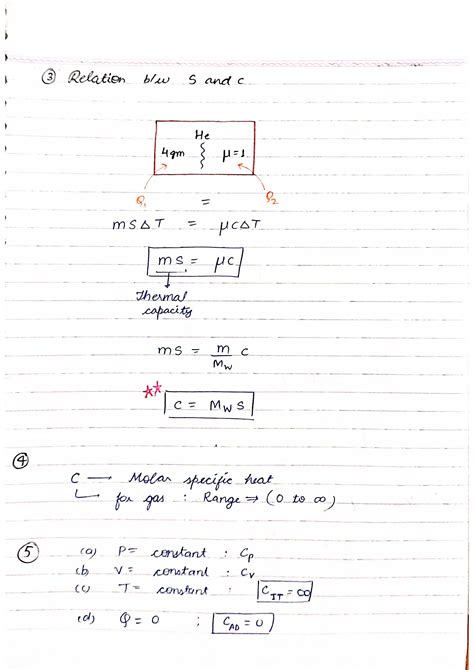 ③ Relation b/w S and C
He
4gm μ=1
Q₁ = Q₂
mSΔT = μCΔT
mS = μC
Thermal
capacity
mS = m/Mw C
** C = Mw S
④
C → Molar specific heat
for gas : Range ⇒ (0 to ∞)
⑤ (a) P = constant : Cp
(b) V = constant : Cv
(c) T = constant : C_IT = ∞
(d) Q = 0 ; C_AD = 0